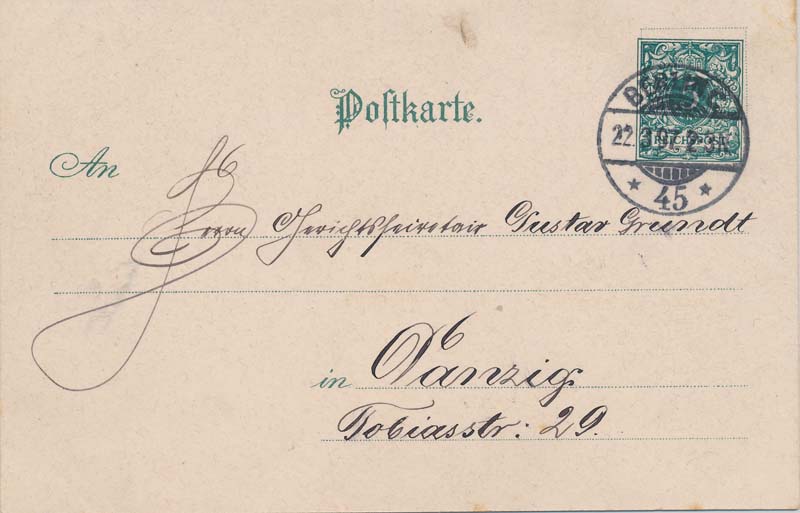 Postkarte.
BERLIN
22. 3. 97. 2-3N.
* 45 *
An
Herrn Gerichtsseiretair Gustav Grundt
in Danzig
Tobiasstr: 29.